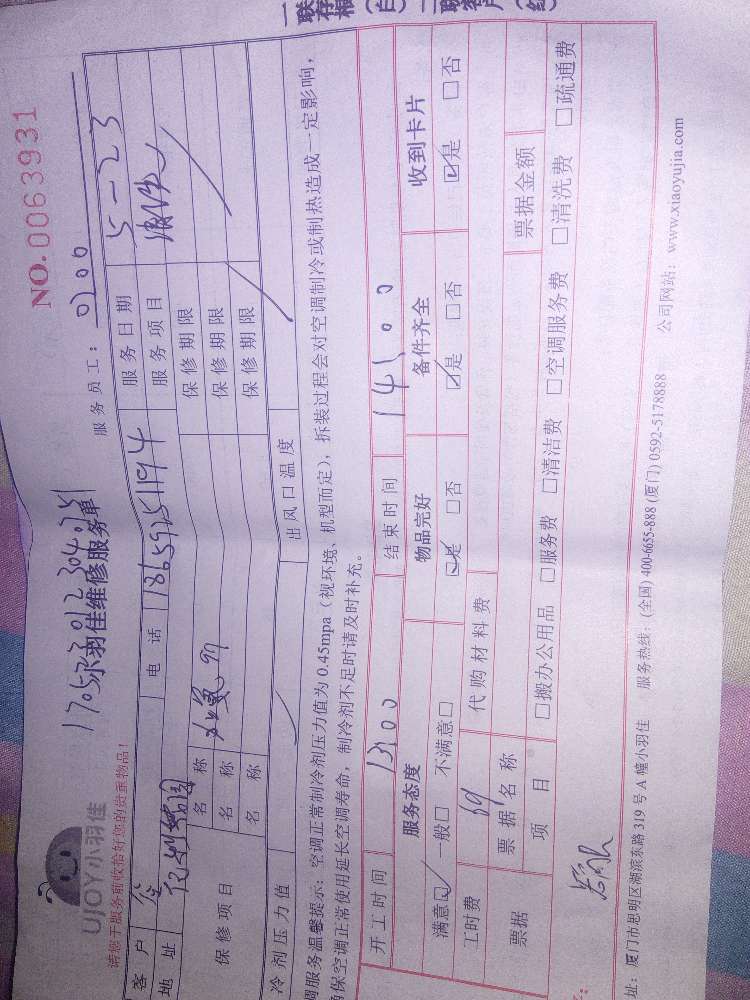 一联存根(白) 二联客户(红)
NO.0063931
UJOY小羽佳
请您于服务前收拾好您的贵重物品!
尔羽佳维修服务单
服务员工: 0200
客户
电话 18659251194
服务日期 5-23
地址
服务项目
保修项目
名称
保修期限
名称
保修期限
名称
保修期限
冷剂压力值
出风口温度
调服务温馨提示:空调正常制冷剂压力值为0.45mpa(视环境、机型而定),拆装过程会对空调制冷或制热造成一定影响,
确保空调正常使用延长空调寿命,制冷剂不足时请及时补充。
开工时间 13:00
结束时间 14:00
服务态度
物品完好
备件齐全
收到卡片
满意☑ 一般□ 不满意□
☑是 □否
☑是 □否
☑是 □否
工时费 69
代购材料费
票据
票据名称
票据金额
项目
□搬办公用品 □服务费 □清洁费 □空调服务费 □清洗费 □疏通费
址:厦门市思明区湖滨东路319号A幢小羽佳 服务热线:(全国)400-6655-888 (厦门)0592-5178888 公司网站:www.xiaoyujia.com